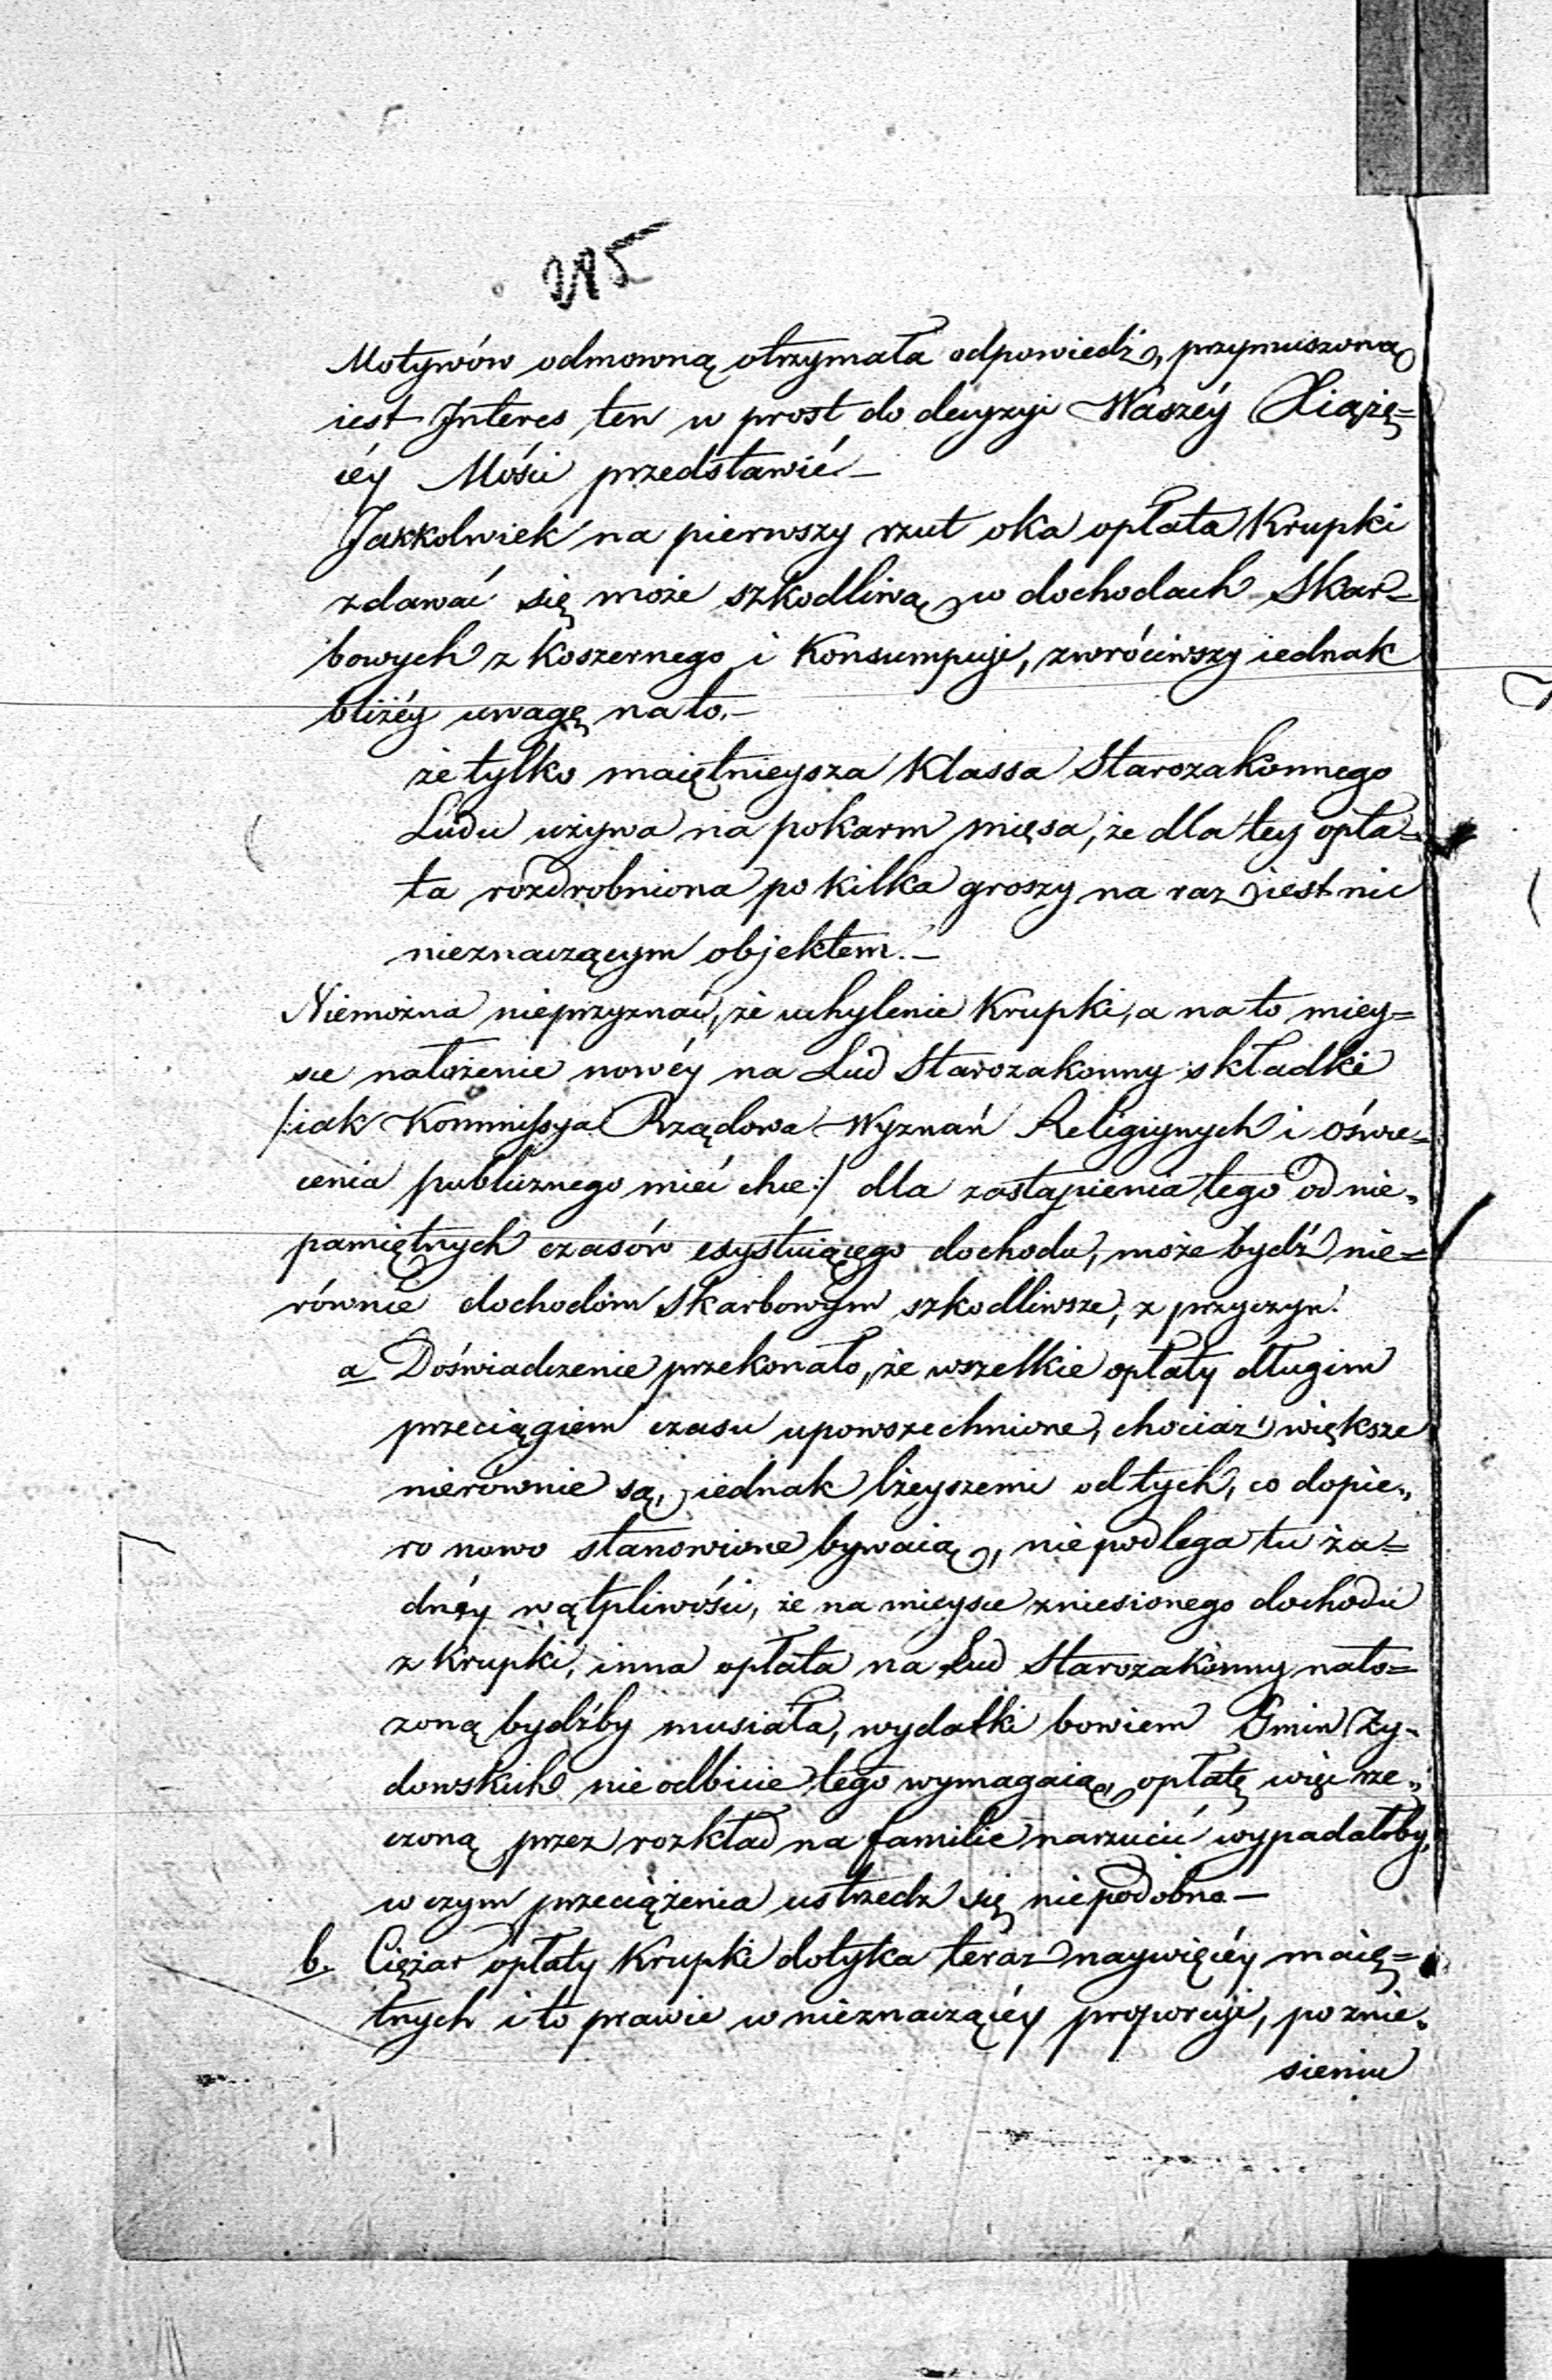 215
Motywów odmowną otrzymała odpowiedź, przymuszoną
iest Interes ten w prost do decyzyi Waszéy Xiążę=
céy Mości przedstawić –
Jakkolwiek na pierwszy rzut oka opłata Krupki
zdawać się może szkodliwą w dochodach Skar=
bowych z koszernego i Konsumpcyi, zwróciwszy iednak
bliżéy uwagę na to. –
że tylko maiętnieysza Klassa Starozakonnego
Ludu używa na pokarm mięsa, że dla tey opła=
ta rozdrobniona po kilka groszy na raz iest nic
nieznaczącym objektem. –
Niemożna nieprzyznać, że uchylenie Krupki, a na to miey=
sce nałożenie nowéy na Lud Starozakonny składki
/:iak Kommissya Rządowa Wyznań Religiynych i Oświe=
cenia publicznego mieć chce:/ dla zastąpienia tego od nie„
pamiętnych czasów exystuiącego dochodu, może bydź nie=
równie dochodom Skarbowym szkodliwsze, z przyczyn:
a Doświadczenie przekonało, że wszelkie opłaty długim
przeciągiem czasu upowszechnione, chociaż większe
nierównie są, iednak lżeyszemi od tych, co dopie„
ro nowo stanowione bywaią, nie podlega tu ża=
dnéy wątpliwości, że na mieysce zniesionego dochodu
z Krupki, inna opłata na Lud Starozakonny nało=
żoną bydźby musiała, wydatki bowiem Gmin Ży„
dowskich nieodbicie tego wymagaią, opłatę więc rze„
czoną przez rozkład na familie narzucić wypadałoby,
w czym przeciążenia ustrzedz się niepodobna –
b. Ciężar opłaty Krupki dotyka teraz naywięcéy maię=
tnych i to prawie w nieznaczącéy proporcyi, po znie„
sieniu